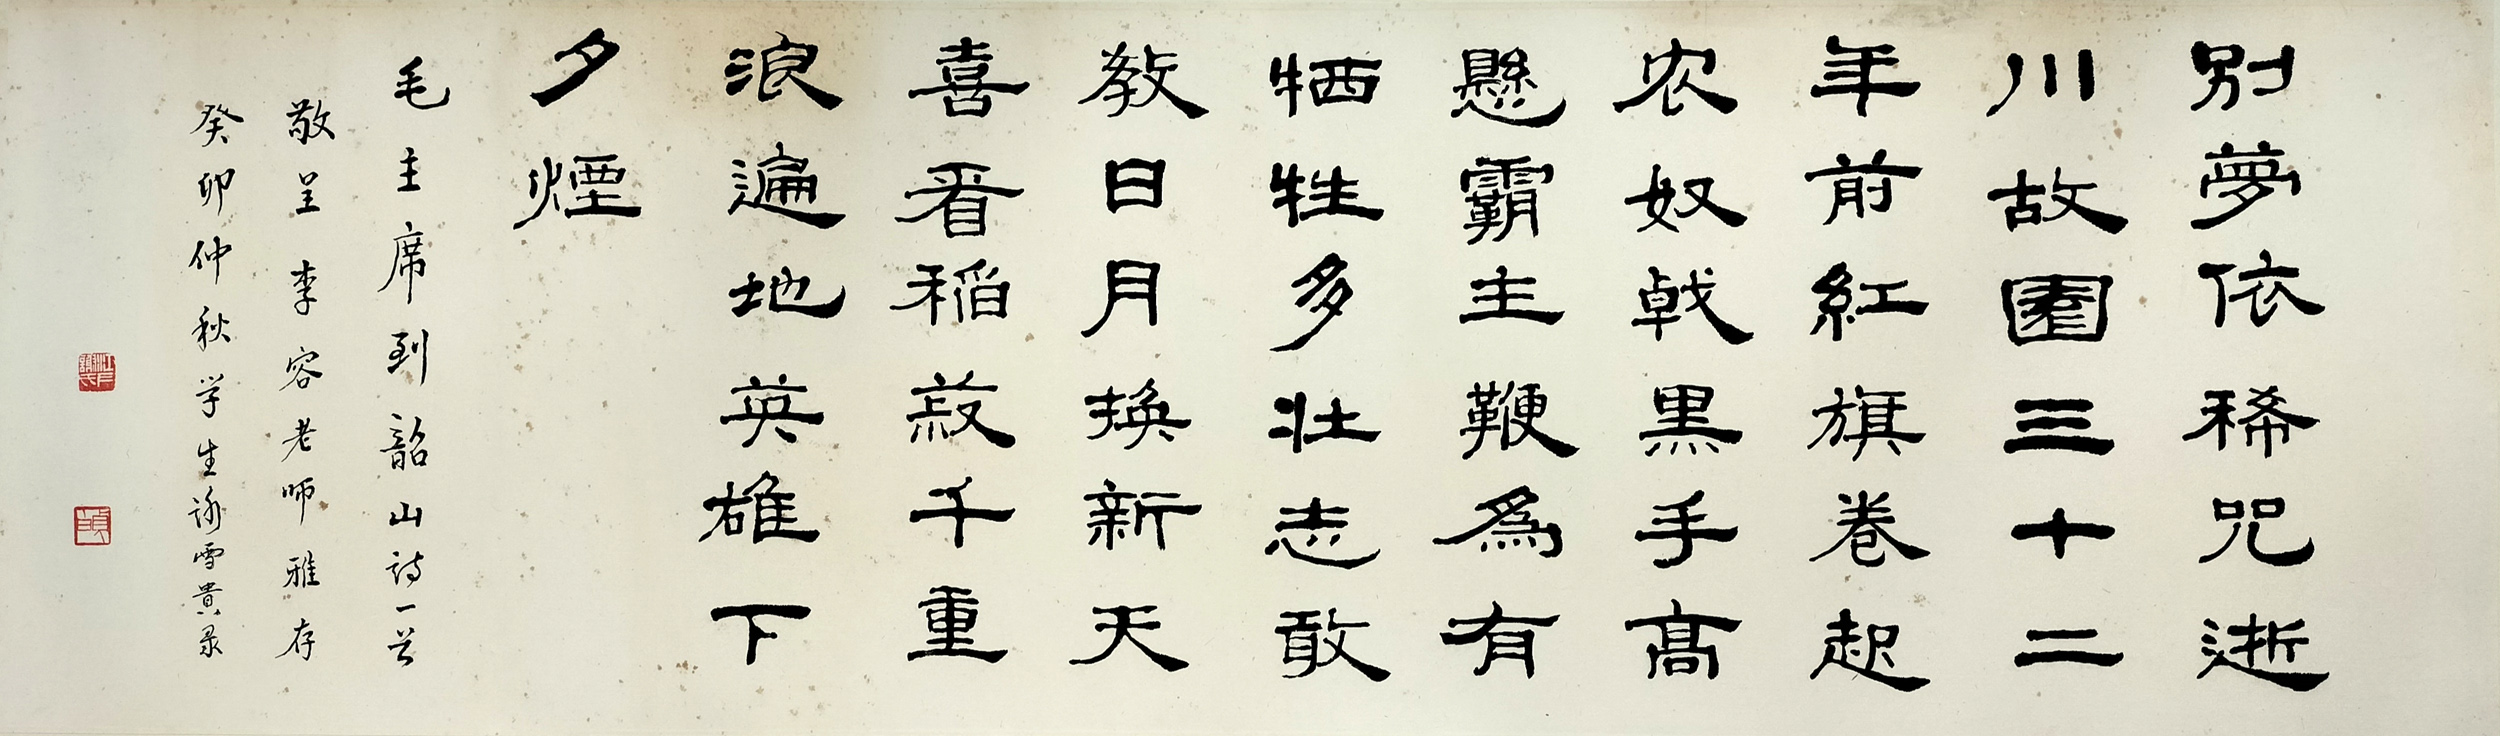 别夢依稀咒逝
川故園三十二
年前紅旗卷起
农奴戟黑手高
懸霸主鞭為有
牺牲多壮志敢
教日月換新天
喜看稻菽千重
浪遍地英雄下
夕煙
毛主席到韶山詩一首
敬呈李容老师雅存
癸卯仲秋学生谢雪貴录